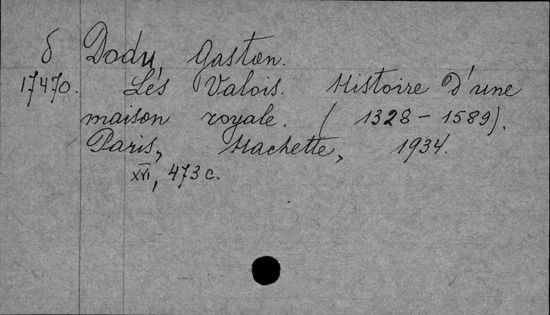 б Dodu, Gaston.
17470. Les Valois. Histoire d'une
maison royale. (1328-1589).
Paris, Hachette, 1934.
XVI, 473 c.